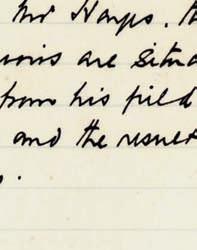 Mr Hayes. th
are situa
from his field
and the resul